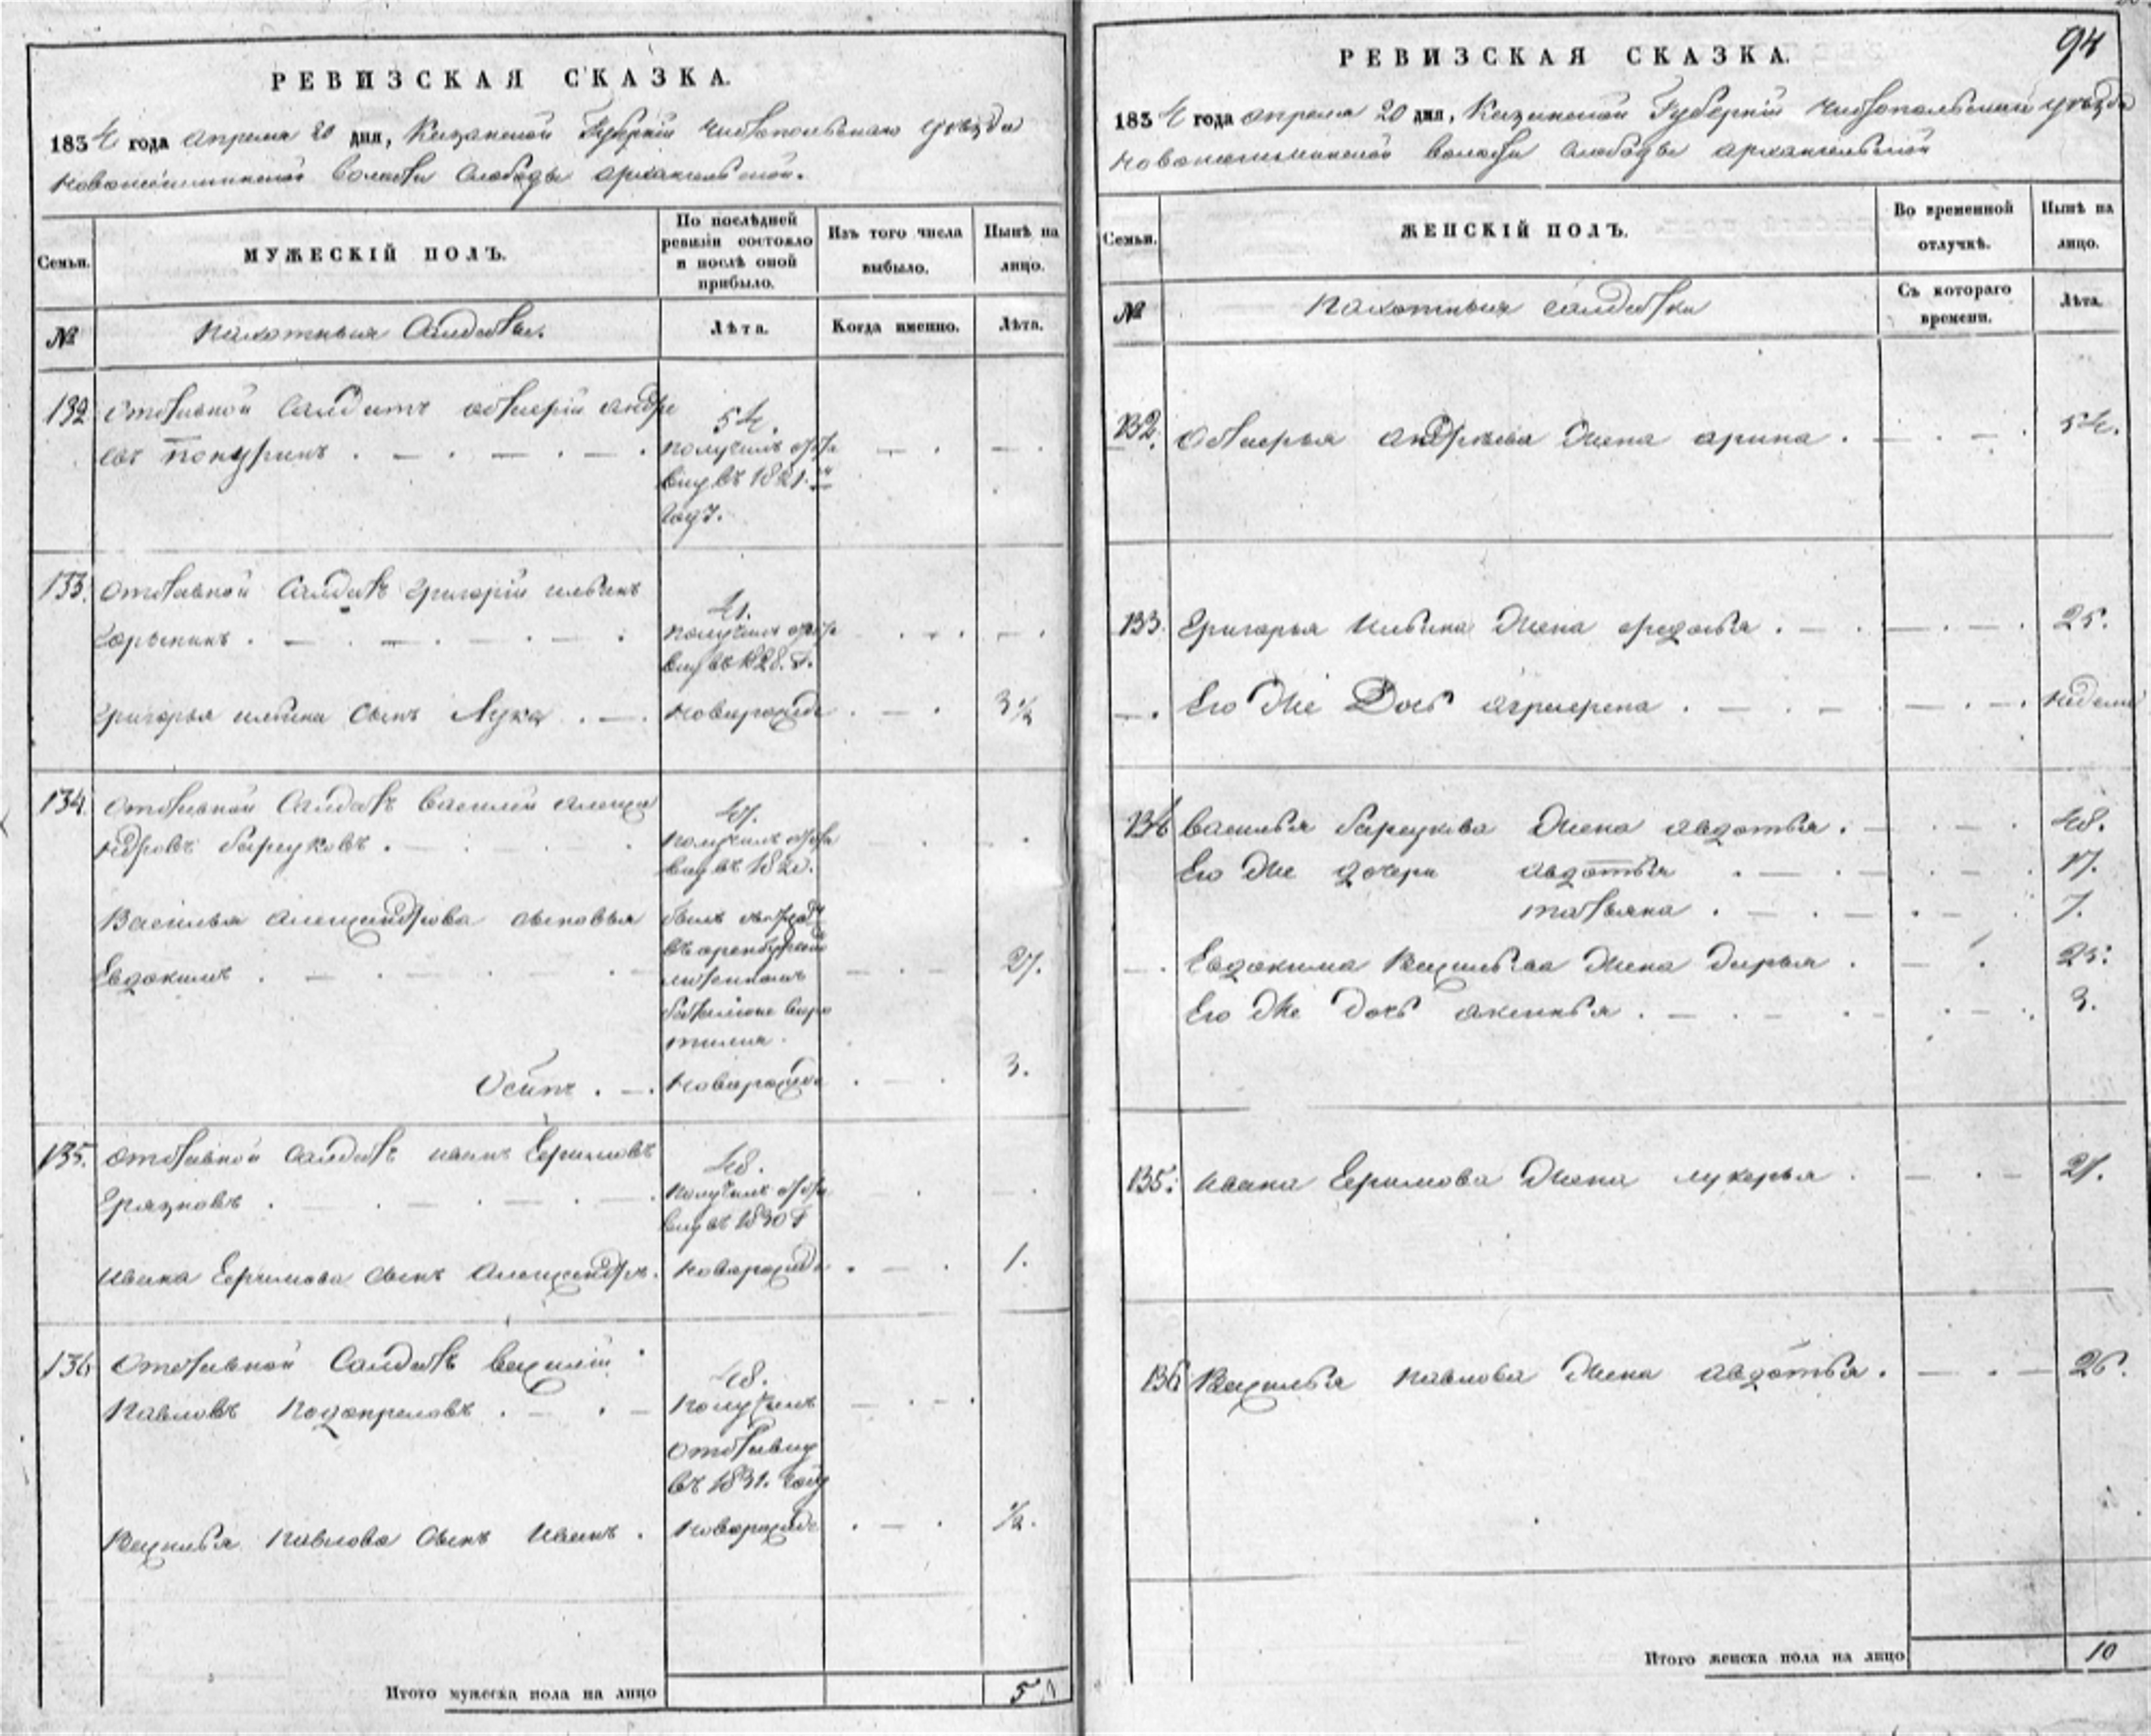 РЕВИЗСКАЯ СКАЗКА.
1834 года апреля 20 дня, Казанской Губернiи Чистопольскаго уѣзда
Новошешминской волости Слободы архангельской.
Семьи.
МУЖЕСКIЙ ПОЛЪ.
По послѣдней
ревизiи состояло
и послѣ оной
прибыло.
Изъ того числа
выбыло.
Нынѣ на
лицо.
№
Пахотныя Салдаты.
Лѣта.
Когда именно.
Лѣта.
132 отставной Салдатъ андре
евъ 54.
получилъ отста
вку въ 1821.м
году.
133. отставной Салдатъ григорiй ильинъ
41.
получилъ отста
вку въ 1828. г.
григорья ильина сынъ Лука . — . новорожде . — . 3½
134. отставной Салдатъ василей алекса
ндровъ 47.
получилъ отста
вку въ
Василья александрова сыновья
Евдокимъ . — . 27.
Осипъ . — . новорожде . — . 3.
135. отставной Салдатъ иванъ Ефимовъ
Грязновъ . 48.
получилъ отста
вку въ 1830 г
ивана Ефимова сынъ александръ. новорожде . — . 1.
136 отставной Салдатъ василiй
Павловъ 48.
получилъ
отставку
въ 1831. году
Василья Павлова сынъ иванъ . новорожде . — . ½.
Итого мужеска пола на лицо 5
94
РЕВИЗСКАЯ СКАЗКА.
1834 года апреля 20 дня, Казанской Губернiи Чистопольской уѣзда
новошешминской волости слободы архангельской
Семьи.
ЖЕНСКIЙ ПОЛЪ.
Во временной
отлучкѣ.
Нынѣ на
лицо.
№
Пахотныя салдатки
Съ котораго
времени.
Лѣта.
132. андрѣева жена арина . — . 54.
133. Григорья Ильина жена федосья . — . 25.
— . Его же Дочь агрофена . — . недели
134 василья жена авдотья . — . 48.
Его же дочери авдотья . — . 17.
татьяна . — . 7.
— . Евдокима Васильева жена дарья . — . 25.
Его же дочь аксинья . — . 3.
135. ивана Ефимова жена лукерья . — . 27.
136 Василья павлова жена авдотья . — . 26.
Итого женска пола на лицо 10